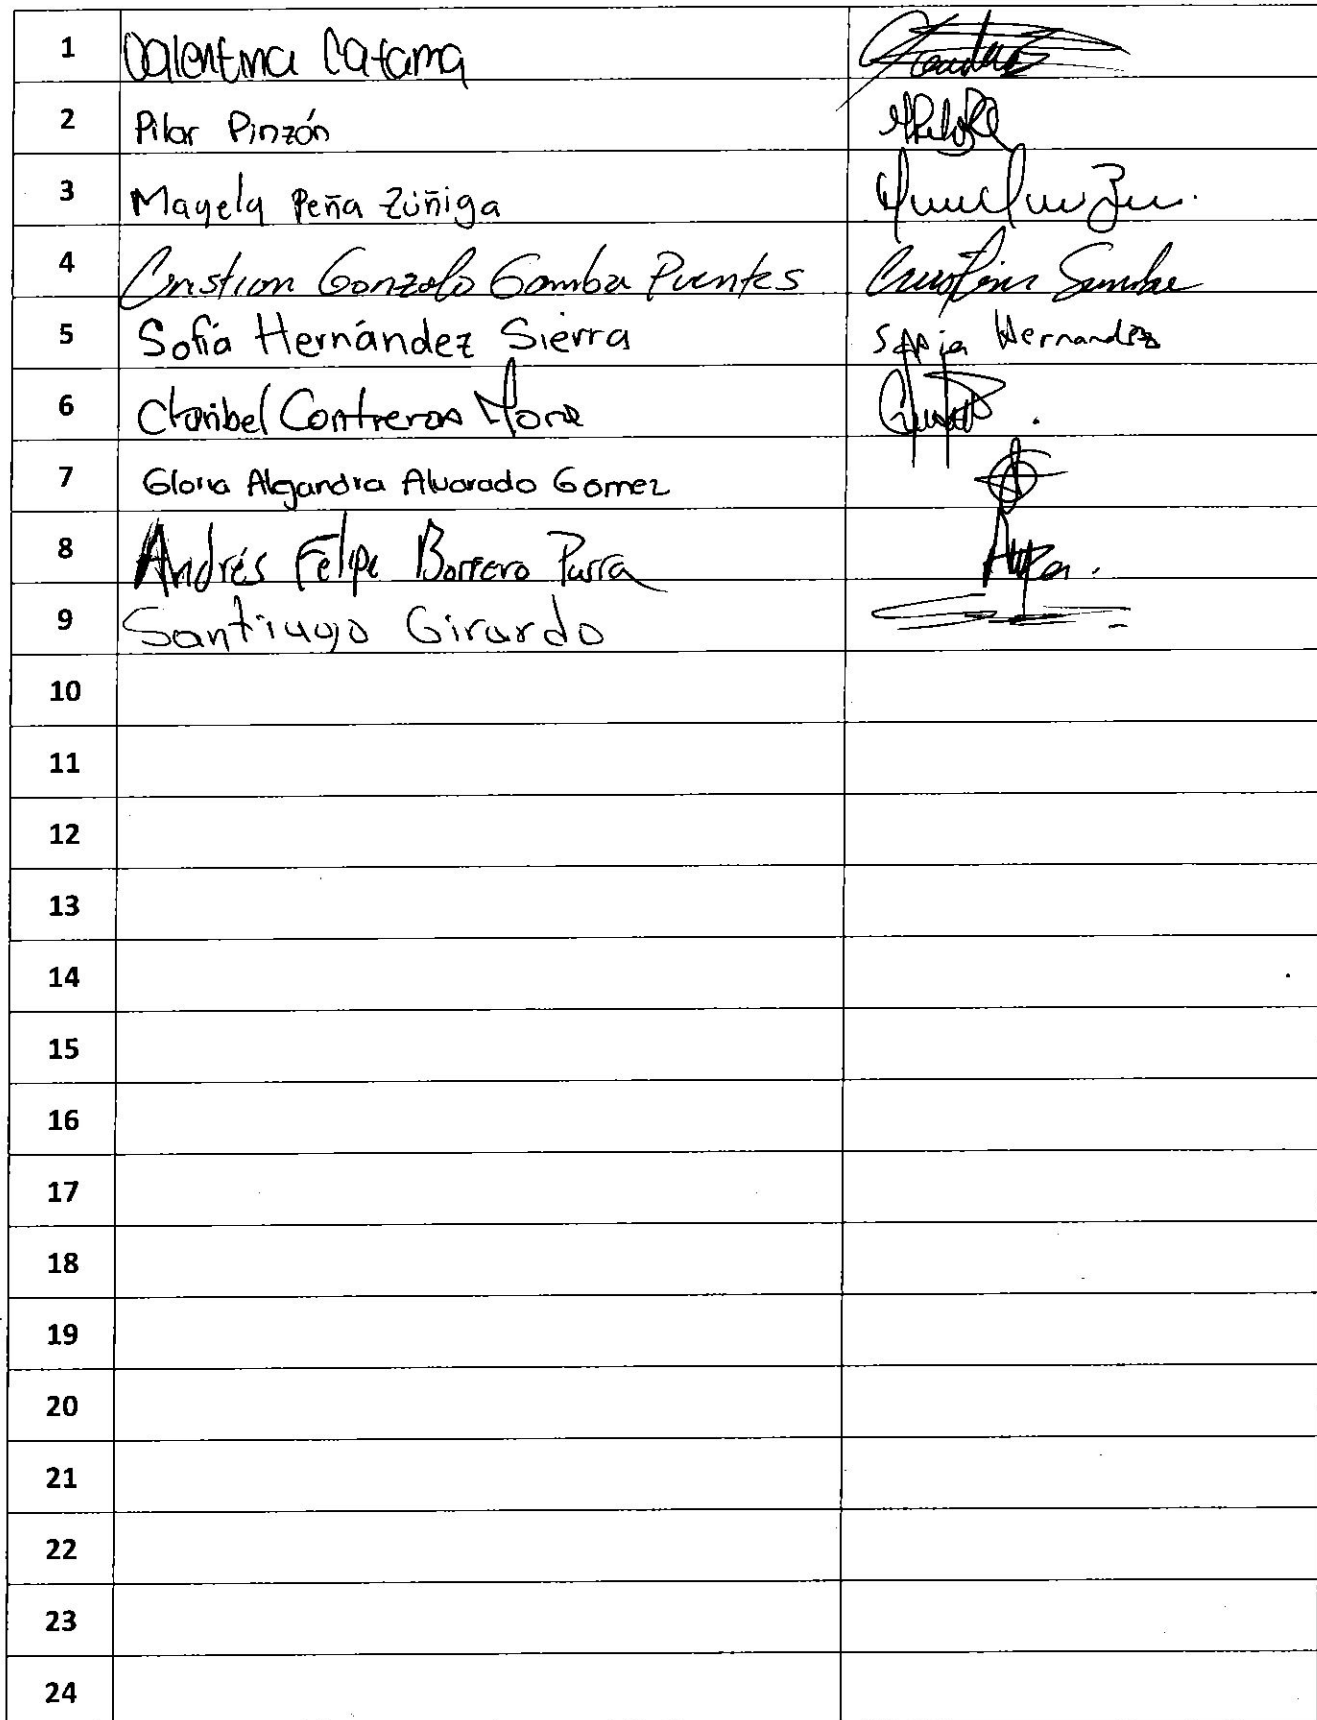 1 Valentina Catama
2 Pilar Pinzón
3 Mayely Peña Zúñiga
4 Cristian Gonzalo Gamba Puentes
5 Sofía Hernández Sierra Sofia Hernandez
6 Claribel Contreras Mora
7 Gloria Alejandra Alvarado Gomez
8 Andrés Felipe Borrero Parra
9 Santiago Girardo
10
11
12
13
14
15
16
17
18
19
20
21
22
23
24